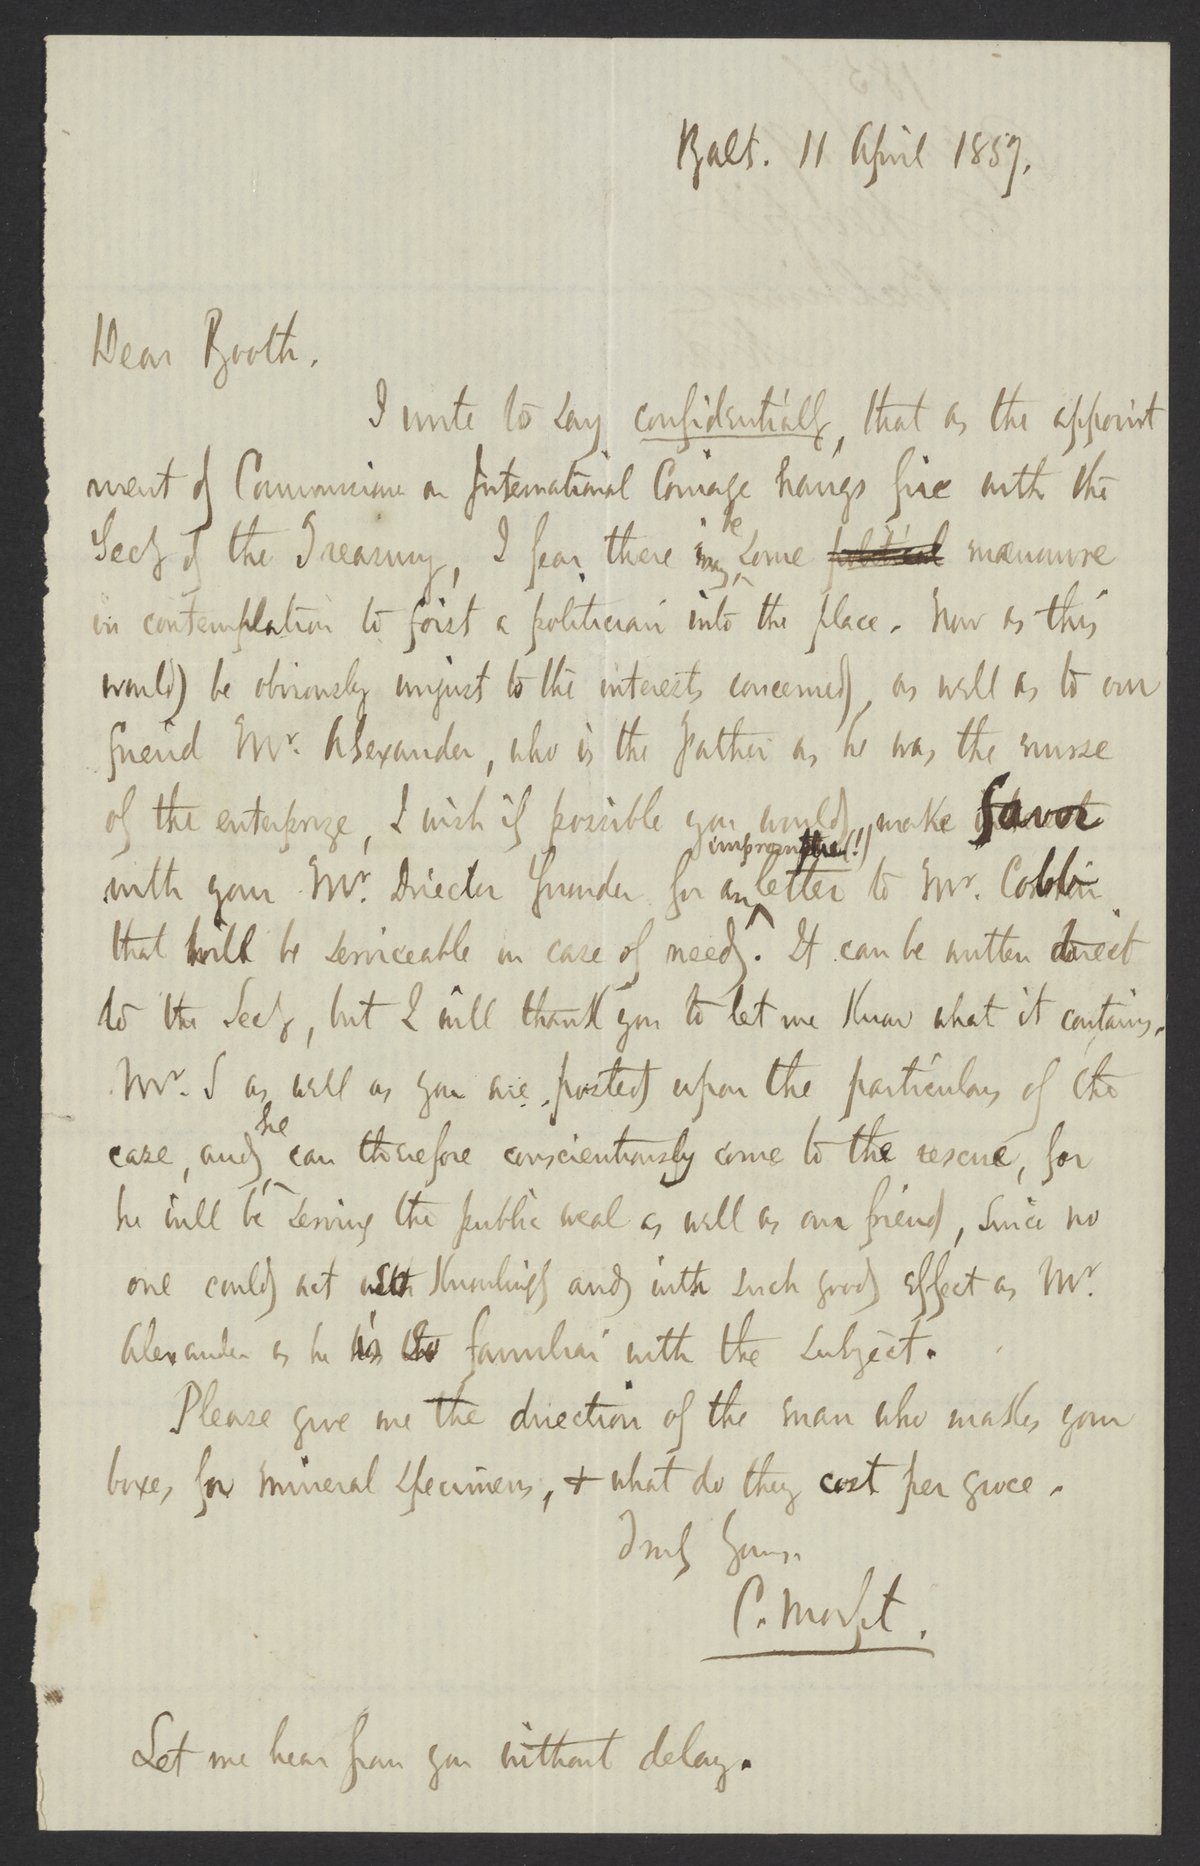 Balt. 11 April 1857.
Dear Booth.
I write to say confidentially, that as the appoint
ment of Commissioner on International Coinage hangs fire with the
Secy of the Treasury, I fear there may be some political manœuvre
in contemplation to foist a politician into the place. Now as this
would be obviously unjust to the interests concerned, as well as to our
friend Mr. Alexander, who is the Father as he was the nurse
of the enterprize, I wish if possible you would make favor
with your Mr. Director Snowden for an impromptu(!) letter to Mr. Cobb
that will be serviceable in case of need. It can be written direct
to the Secy, but I will thank you to let me know what it contains.
Mr. S as well as you are posted upon the particulars of the
case, and he can therefore conscientiously come to the rescue, for
he will be serving the public weal as well as our friend, since no
one could act so knowingly and with such good effect as Mr.
Alexander as he is so familiar with the subject.
Please give me the direction of the man who makes your
boxes for mineral specimens, + what do they cost per groce.
Truly Yours.
C. Morfit.
Let me hear from you without delay.